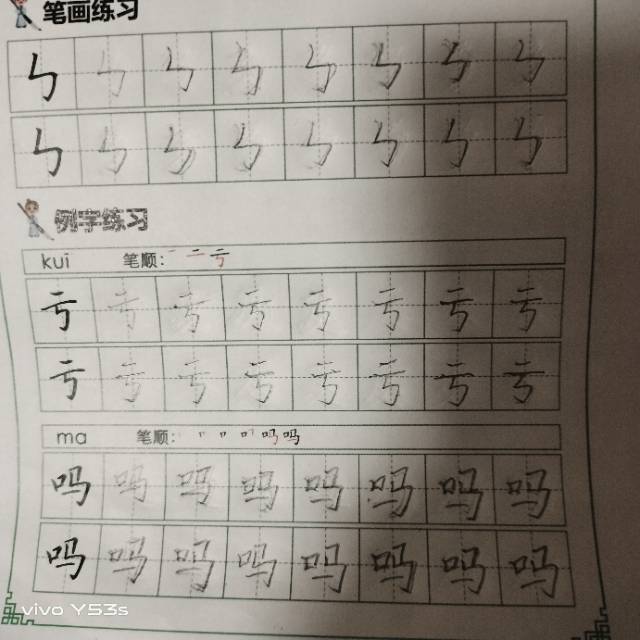 笔画练习
ㄣ ㄣ ㄣ ㄣ ㄣ ㄣ ㄣ ㄣ
ㄣ ㄣ ㄣ ㄣ ㄣ ㄣ ㄣ ㄣ
例字练习
kui 笔顺: 一 二 亏
亏 亏 亏 亏 亏 亏 亏 亏
亏 亏 亏 亏 亏 亏 亏 亏
ma 笔顺: 吗 吗
吗 吗 吗 吗 吗 吗 吗 吗
吗 吗 吗 吗 吗 吗 吗 吗
vivo Y53s